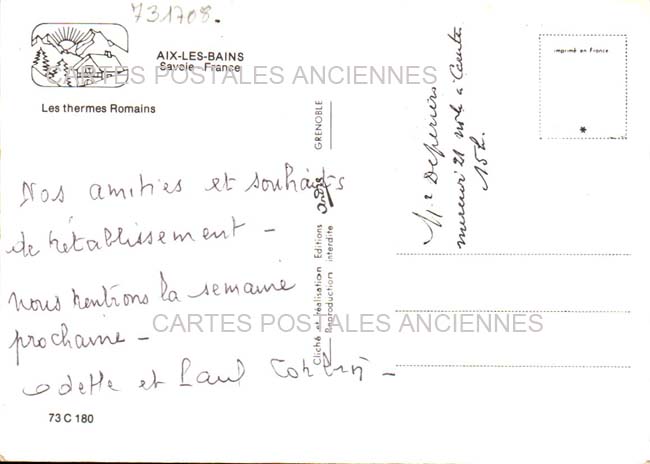 731708.
AIX-LES-BAINS
Savoie - France
CARTES POSTALES ANCIENNES
Les thermes Romains
Nos amitiés et souhaits
de rétablissement -
nous rentrons la semaine
prochaine -
CARTES POSTALES ANCIENNES
Odette et Paul
73 C 180
Cliché et réalisation Editions andré GRENOBLE
Reproduction interdite
imprimé en France
*
21
15h.